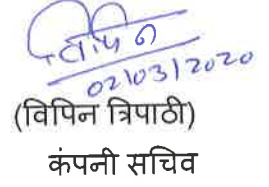 विपिन
02/03/2020
(विपिन त्रिपाठी)
कंपनी सचिव